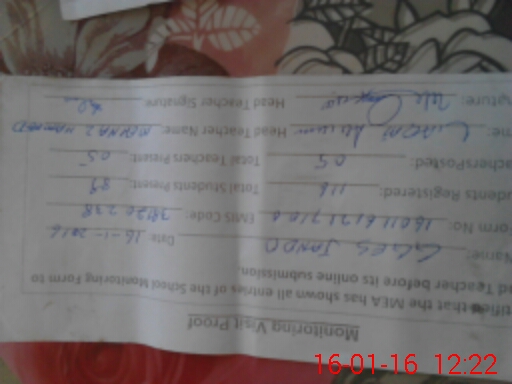 Monitoring Visit Proof
tified that the MEA has shown all entries of the School Monitoring Form to
ad Teacher before its online submission.
Name: GGES JANDO Date: 16-1-2016
Form No: EMIS Code: 38120238
udents Registered: 116 Total Students Present: 89
eachersPosted: 05 Total Teachers Present: 05
me: Head Teacher Name:
nature: Head Teacher Signature:
16-01-16 12:22